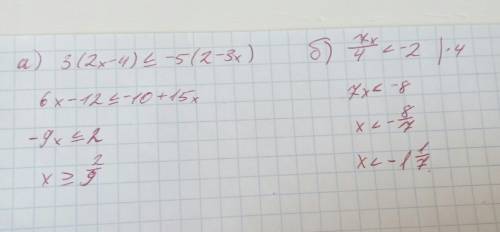 а) 3(2x-4) ≤ -5(2-3x)
6x-12 ≤ -10+15x
-9x ≤ 2
x ≥ 2/9
б) 7x/4 < -2 |·4
7x < -8
x < -8/7
x < -1 1/7